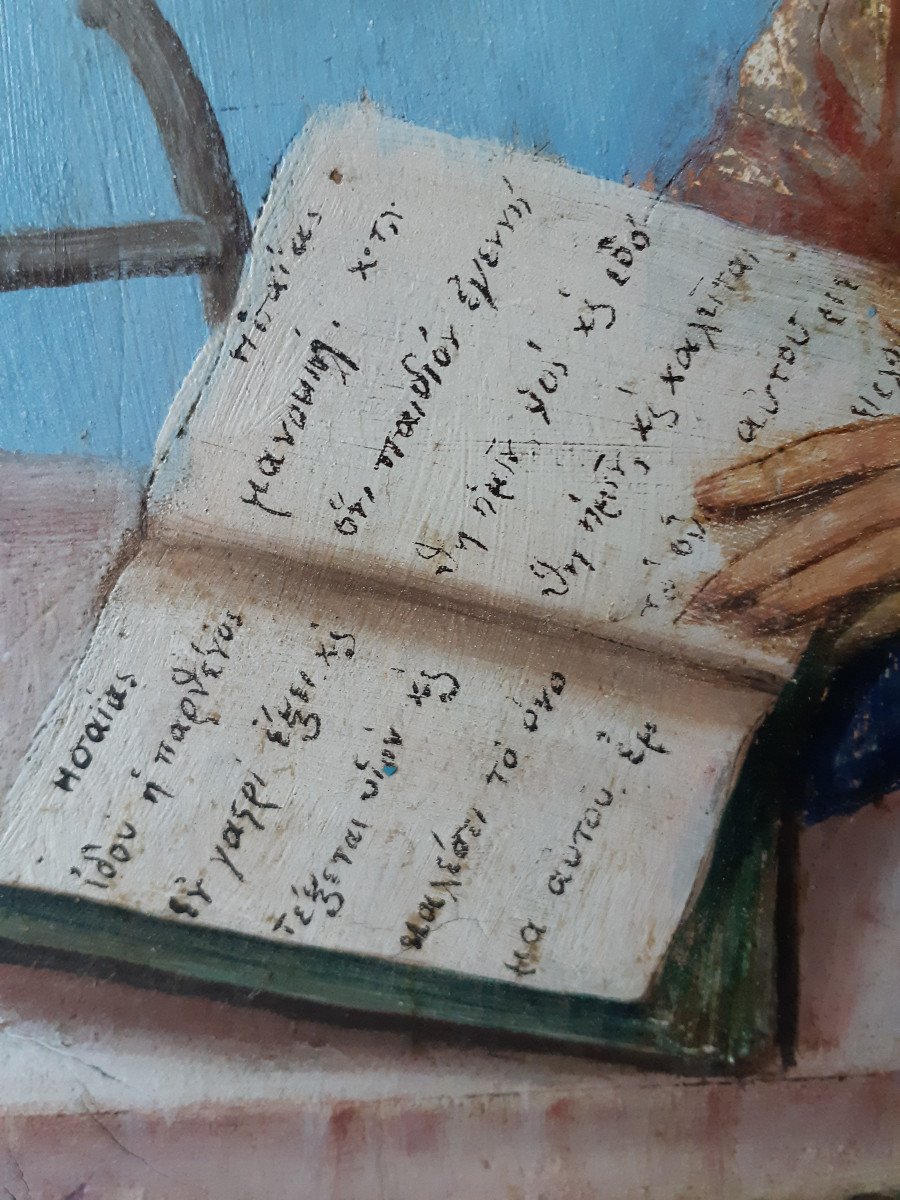 ησαίας
ἰδου ἡ παρθένος
ἐν γαςρὶ ἕξει κς
τέξεται υἱὸν κς
καλέσει τὸ ὄνο
μα αὐτου. ἐμ
ησαίας
μανουήλ. κ.τλ.
ὅτι, παιδίον ἐγεννή
θη ἡμῖν υἱὸς κς ἐδό
θη ἡμῖν, κς καλεῖται
τὸ αὐτου